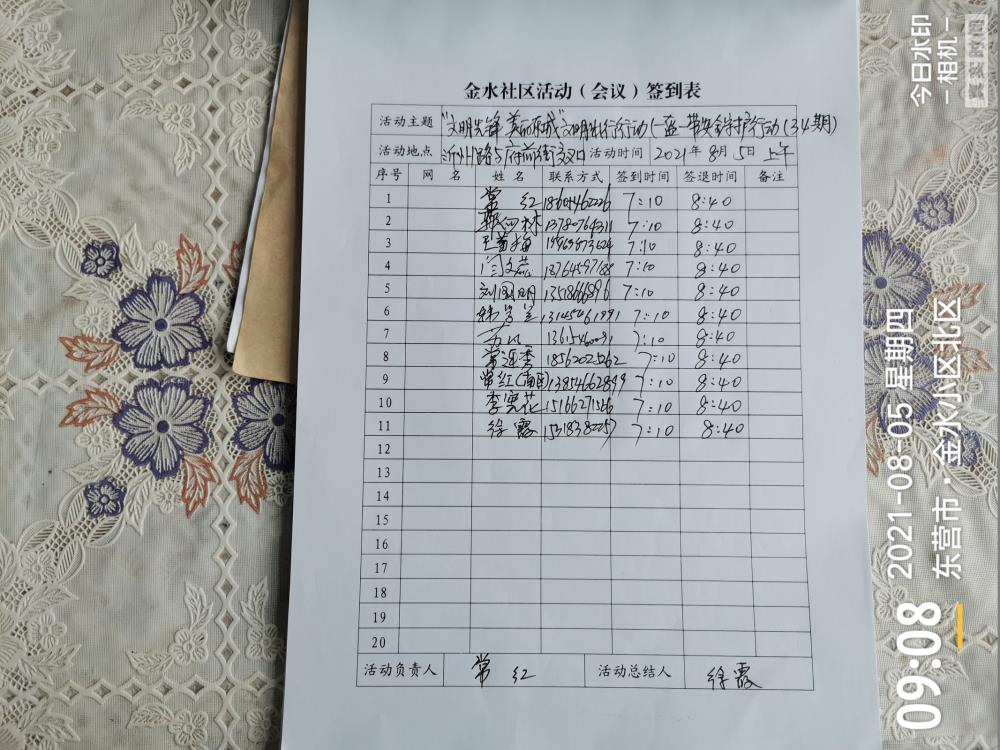 金水社区活动（会议）签到表
活动主题 "文明先锋 美丽东城"文明出行行动(一盔一带安全守护行动(34期)
活动地点 沂州路与府前街交叉口 活动时间 2021年 8月 5日 上午
序号 网 名 姓 名 联系方式 签到时间 签退时间 备注
1 常 红 7:10 8:40
2 13780764311 7:10 8:40
3 7:10 8:40
4 闫文燕 18764597188 7:10 8:40
5 刘国明 7:10 8:40
6 韩芳兰 13145461991 7:10 8:40
7 7:10 8:40
8 常连香 18562025262 7:10 8:40
9 常红(南区) 13854662899 7:10 8:40
10 李雪花 7:10 8:40
11 徐霞 15318382257 7:10 8:40
12
13
14
15
16
17
18
19
20
活动负责人 常 红 活动总结人 徐霞
今日水印
－相机－
真实时间
09:08
2021-08-05 星期四
东营市·金水小区北区